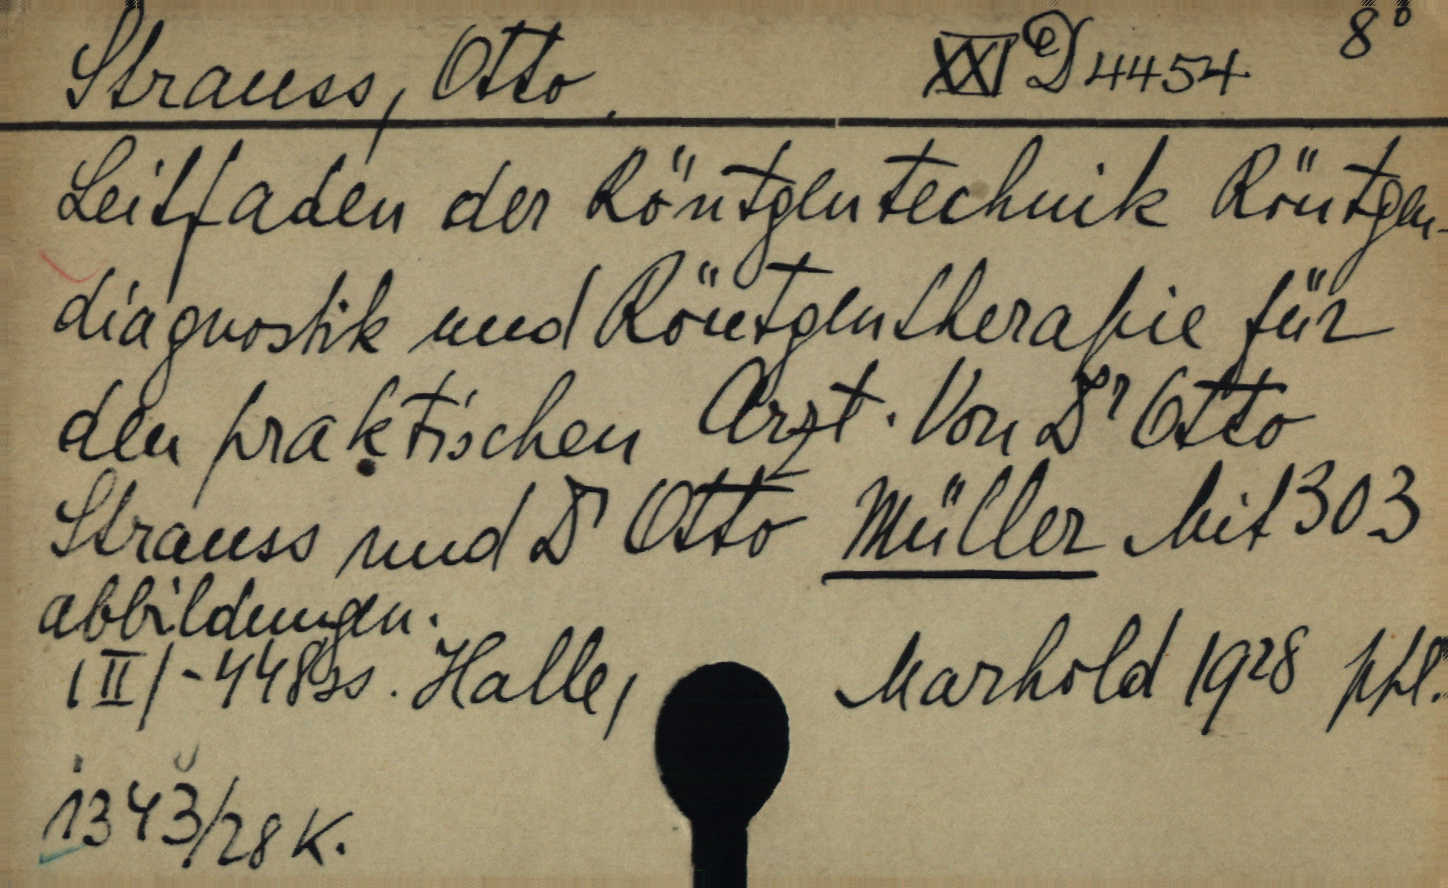 Strauss, Otto. XXI D e 4454 8°
Leitfaden der Röntgentechnik Röntgen-
diagnostik und Röntgentherapie für
den praktischen Arzt. Von Dr Otto
Strauss und Dr Otto Müller Mit 303
abbildungen.
(II) - 448 ss. Halle, Marhold 1928 ppl.
1343/28 K.